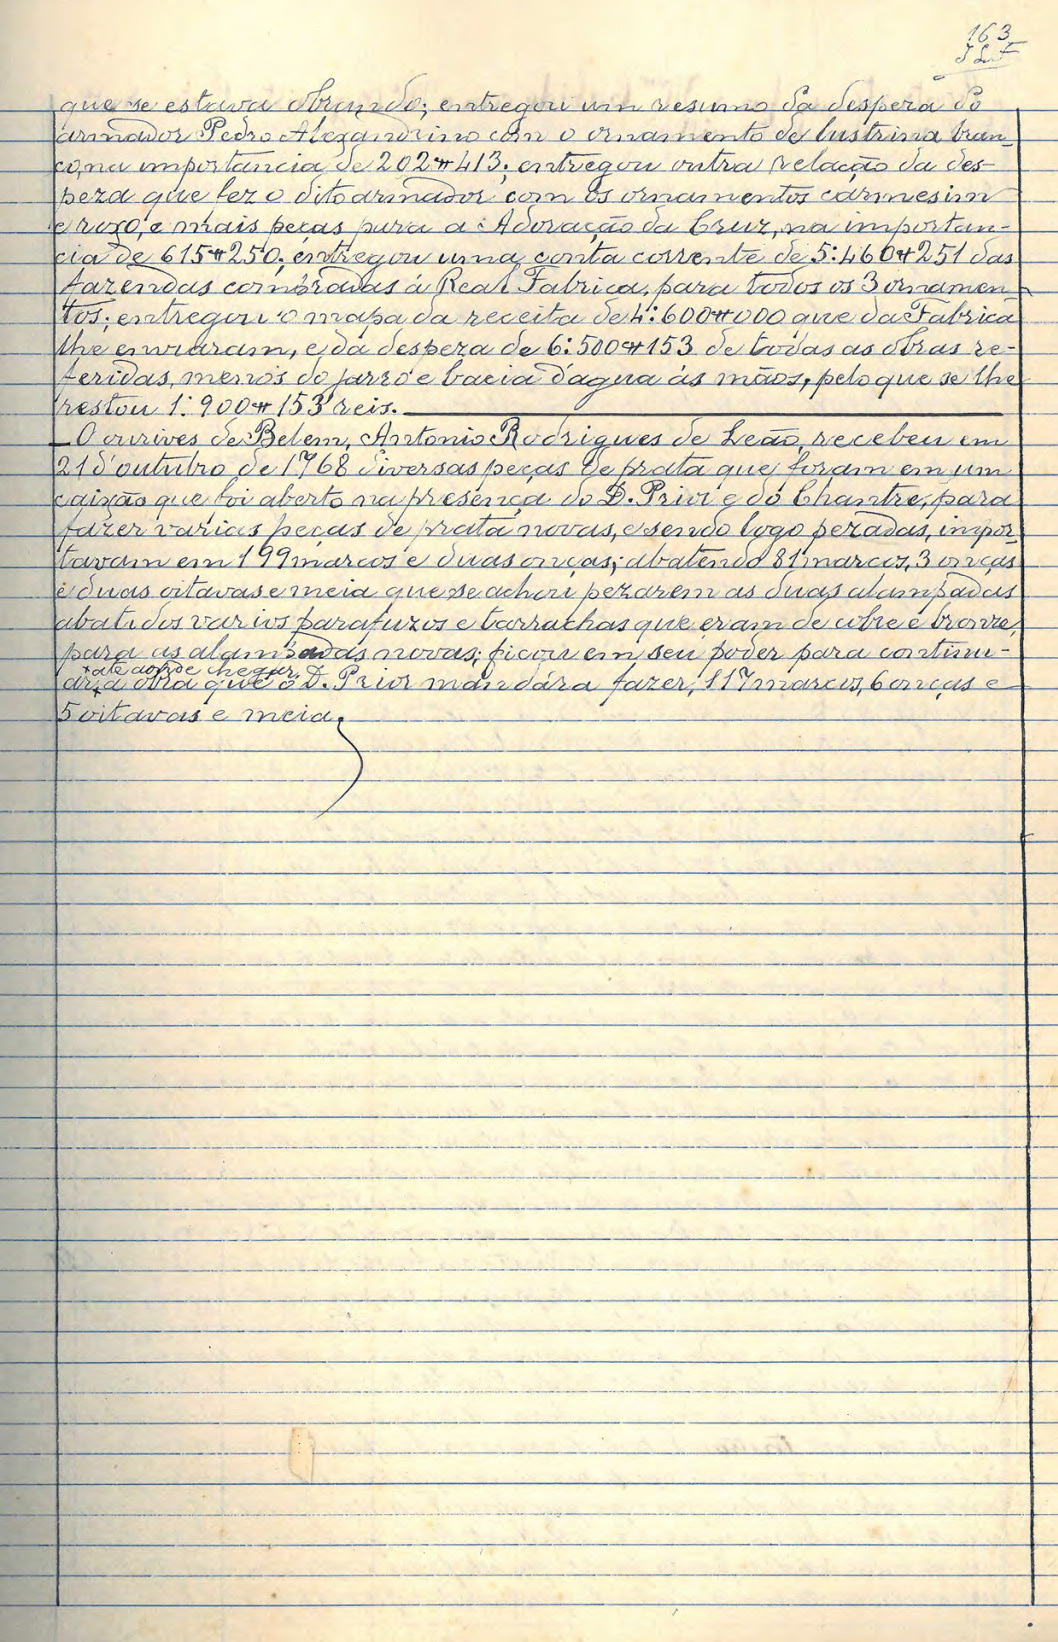 163
que se estava obrando; entregou um resumo da despeza do
armador Pedro Alexandrino com o ornamento de lustrina bran-
co, na importancia de 202$413; entregou outra relação da des-
peza que fez o dito armador com os ornamentos carmesim
e roxo, e mais peças para a Adoração da Cruz, na importan-
cia de 615$250; entregou uma conta corrente de 5:460$251 das
fazendas compradas á Real Fabrica, para todos os 3 ornamen-
tos; entregou o mapa da receita de 4:600$000 que da Fabrica
lhe enviaram, e da despeza de 6:500$153 de todas as obras re-
feridas, menos do jarro e bacia d'agua ás mãos, pelo que se lhe
restou 1:900$153 reis.
O ourives de Belem, Antonio Rodrigues de Leão, recebeu em
21 d'outubro de 1768 diversas peças de prata que foram em um
caixão que foi aberto na presença do D. Prior e do Chantre, para
fazer varias peças de prata novas, e sendo logo pezadas, impor-
tavam em 199 marcos e duas onças; abatendo 81 marcos, 3 onças
e duas oitavas e meia que se achou pezarem as duas alampadas
abatidos varios parafuzos e tarrachas que eram de cobre e bronze,
para as alampadas novas; ficou em seu poder para continu-
+ até aonde chegar,
ar,+a obra que o D. Prior mandára fazer, 117 marcos, 6 onças e
5 oitavas e meia.